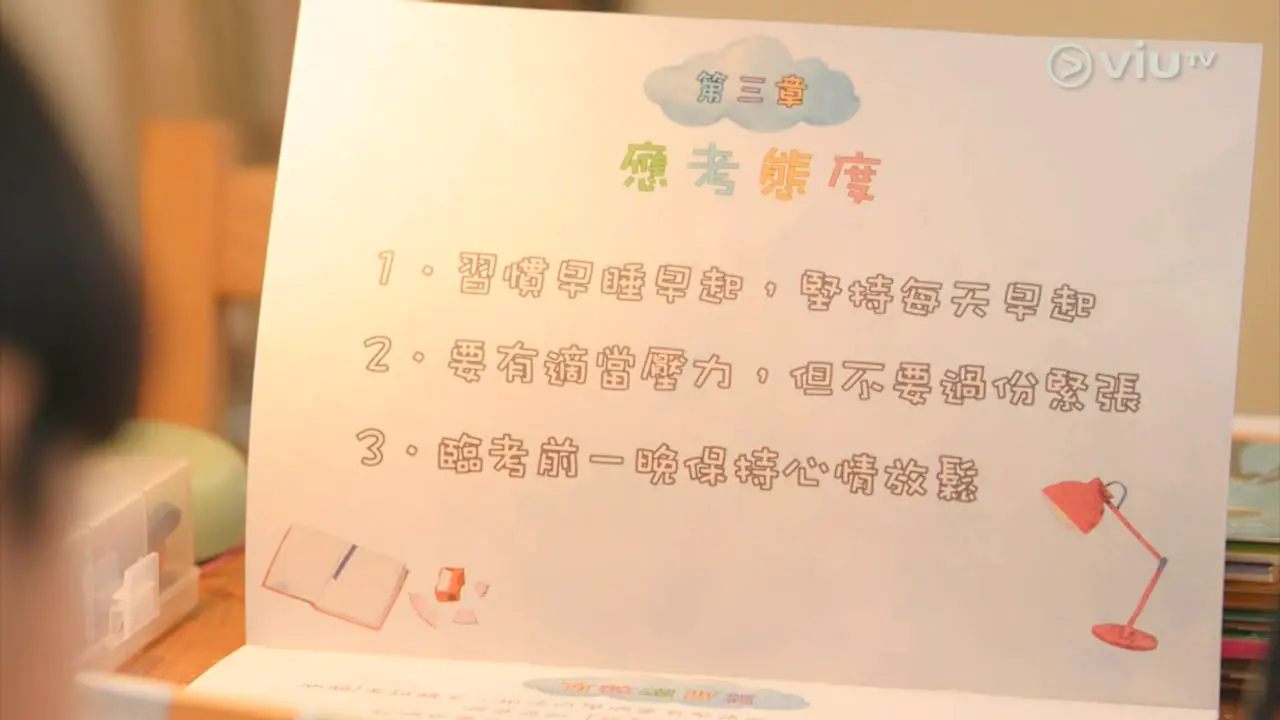 viuTV
第三章
應考態度
1·習慣早睡早起，堅持每天早起
2·要有適當壓力，但不要過份緊張
3·臨考前一晚保持心情放鬆